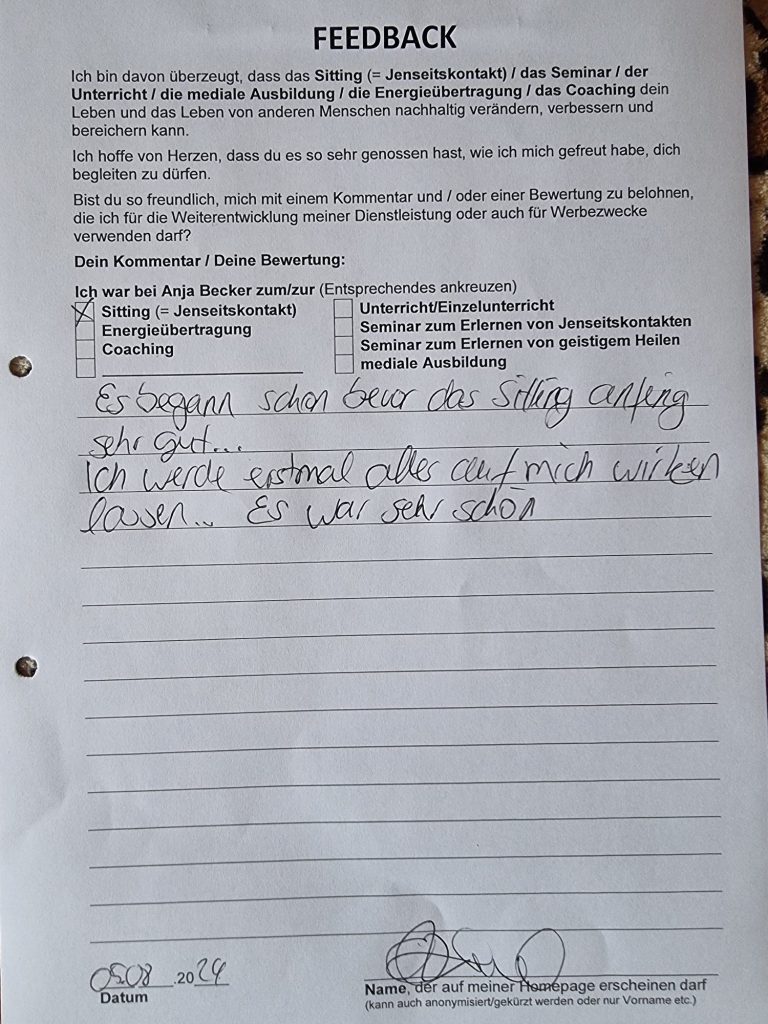 FEEDBACK
Ich bin davon überzeugt, dass das Sitting (= Jenseitskontakt) / das Seminar / der
Unterricht / die mediale Ausbildung / die Energieübertragung / das Coaching dein
Leben und das Leben von anderen Menschen nachhaltig verändern, verbessern und
bereichern kann.
Ich hoffe von Herzen, dass du es so sehr genossen hast, wie ich mich gefreut habe, dich
begleiten zu dürfen.
Bist du so freundlich, mich mit einem Kommentar und / oder einer Bewertung zu belohnen,
die ich für die Weiterentwicklung meiner Dienstleistung oder auch für Werbezwecke
verwenden darf?
Dein Kommentar / Deine Bewertung:
Ich war bei Anja Becker zum/zur (Entsprechendes ankreuzen)
Sitting (= Jenseitskontakt)
Energieübertragung
Coaching
Unterricht/Einzelunterricht
Seminar zum Erlernen von Jenseitskontakten
Seminar zum Erlernen von geistigem Heilen
mediale Ausbildung
Es begann schon bevor das Sitting anfing
sehr gut...
Ich werde erstmal alles auf mich wirken
lassen... Es war sehr schön
05.08 .2024
Datum
Name, der auf meiner Homepage erscheinen darf
(kann auch anonymisiert/gekürzt werden oder nur Vorname etc.)